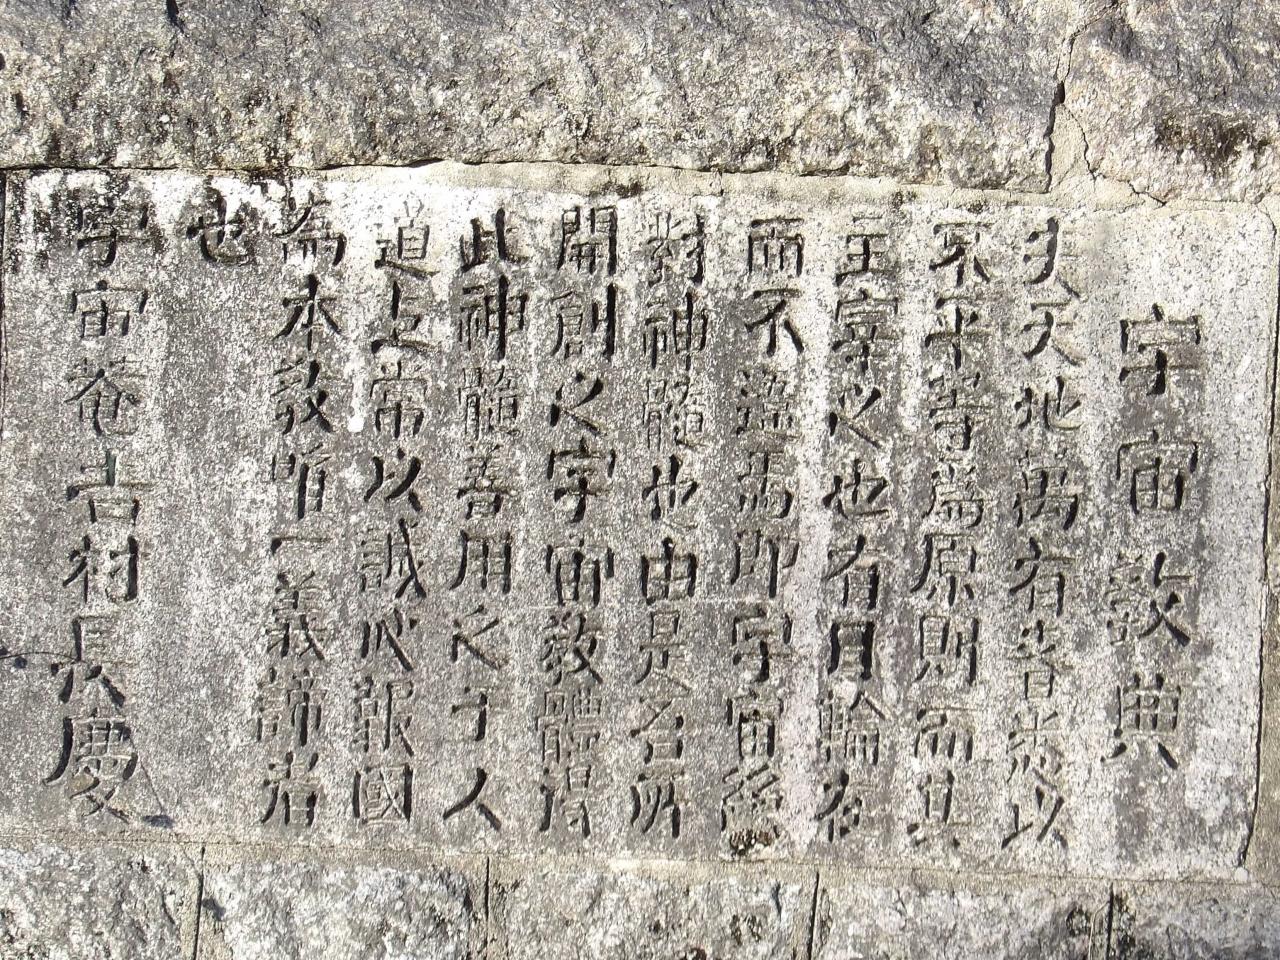 宇宙教典
夫天地萬有者悉以
不平等為原則而其
主宰之也有日輪在
而不遥焉即宇宙絶
對神髓也由是名所
開創之宇宙教體得
此神髓善用之于人
道上常以誠心報國
為本教唯一義諦者
也
宇宙菴吉村長慶